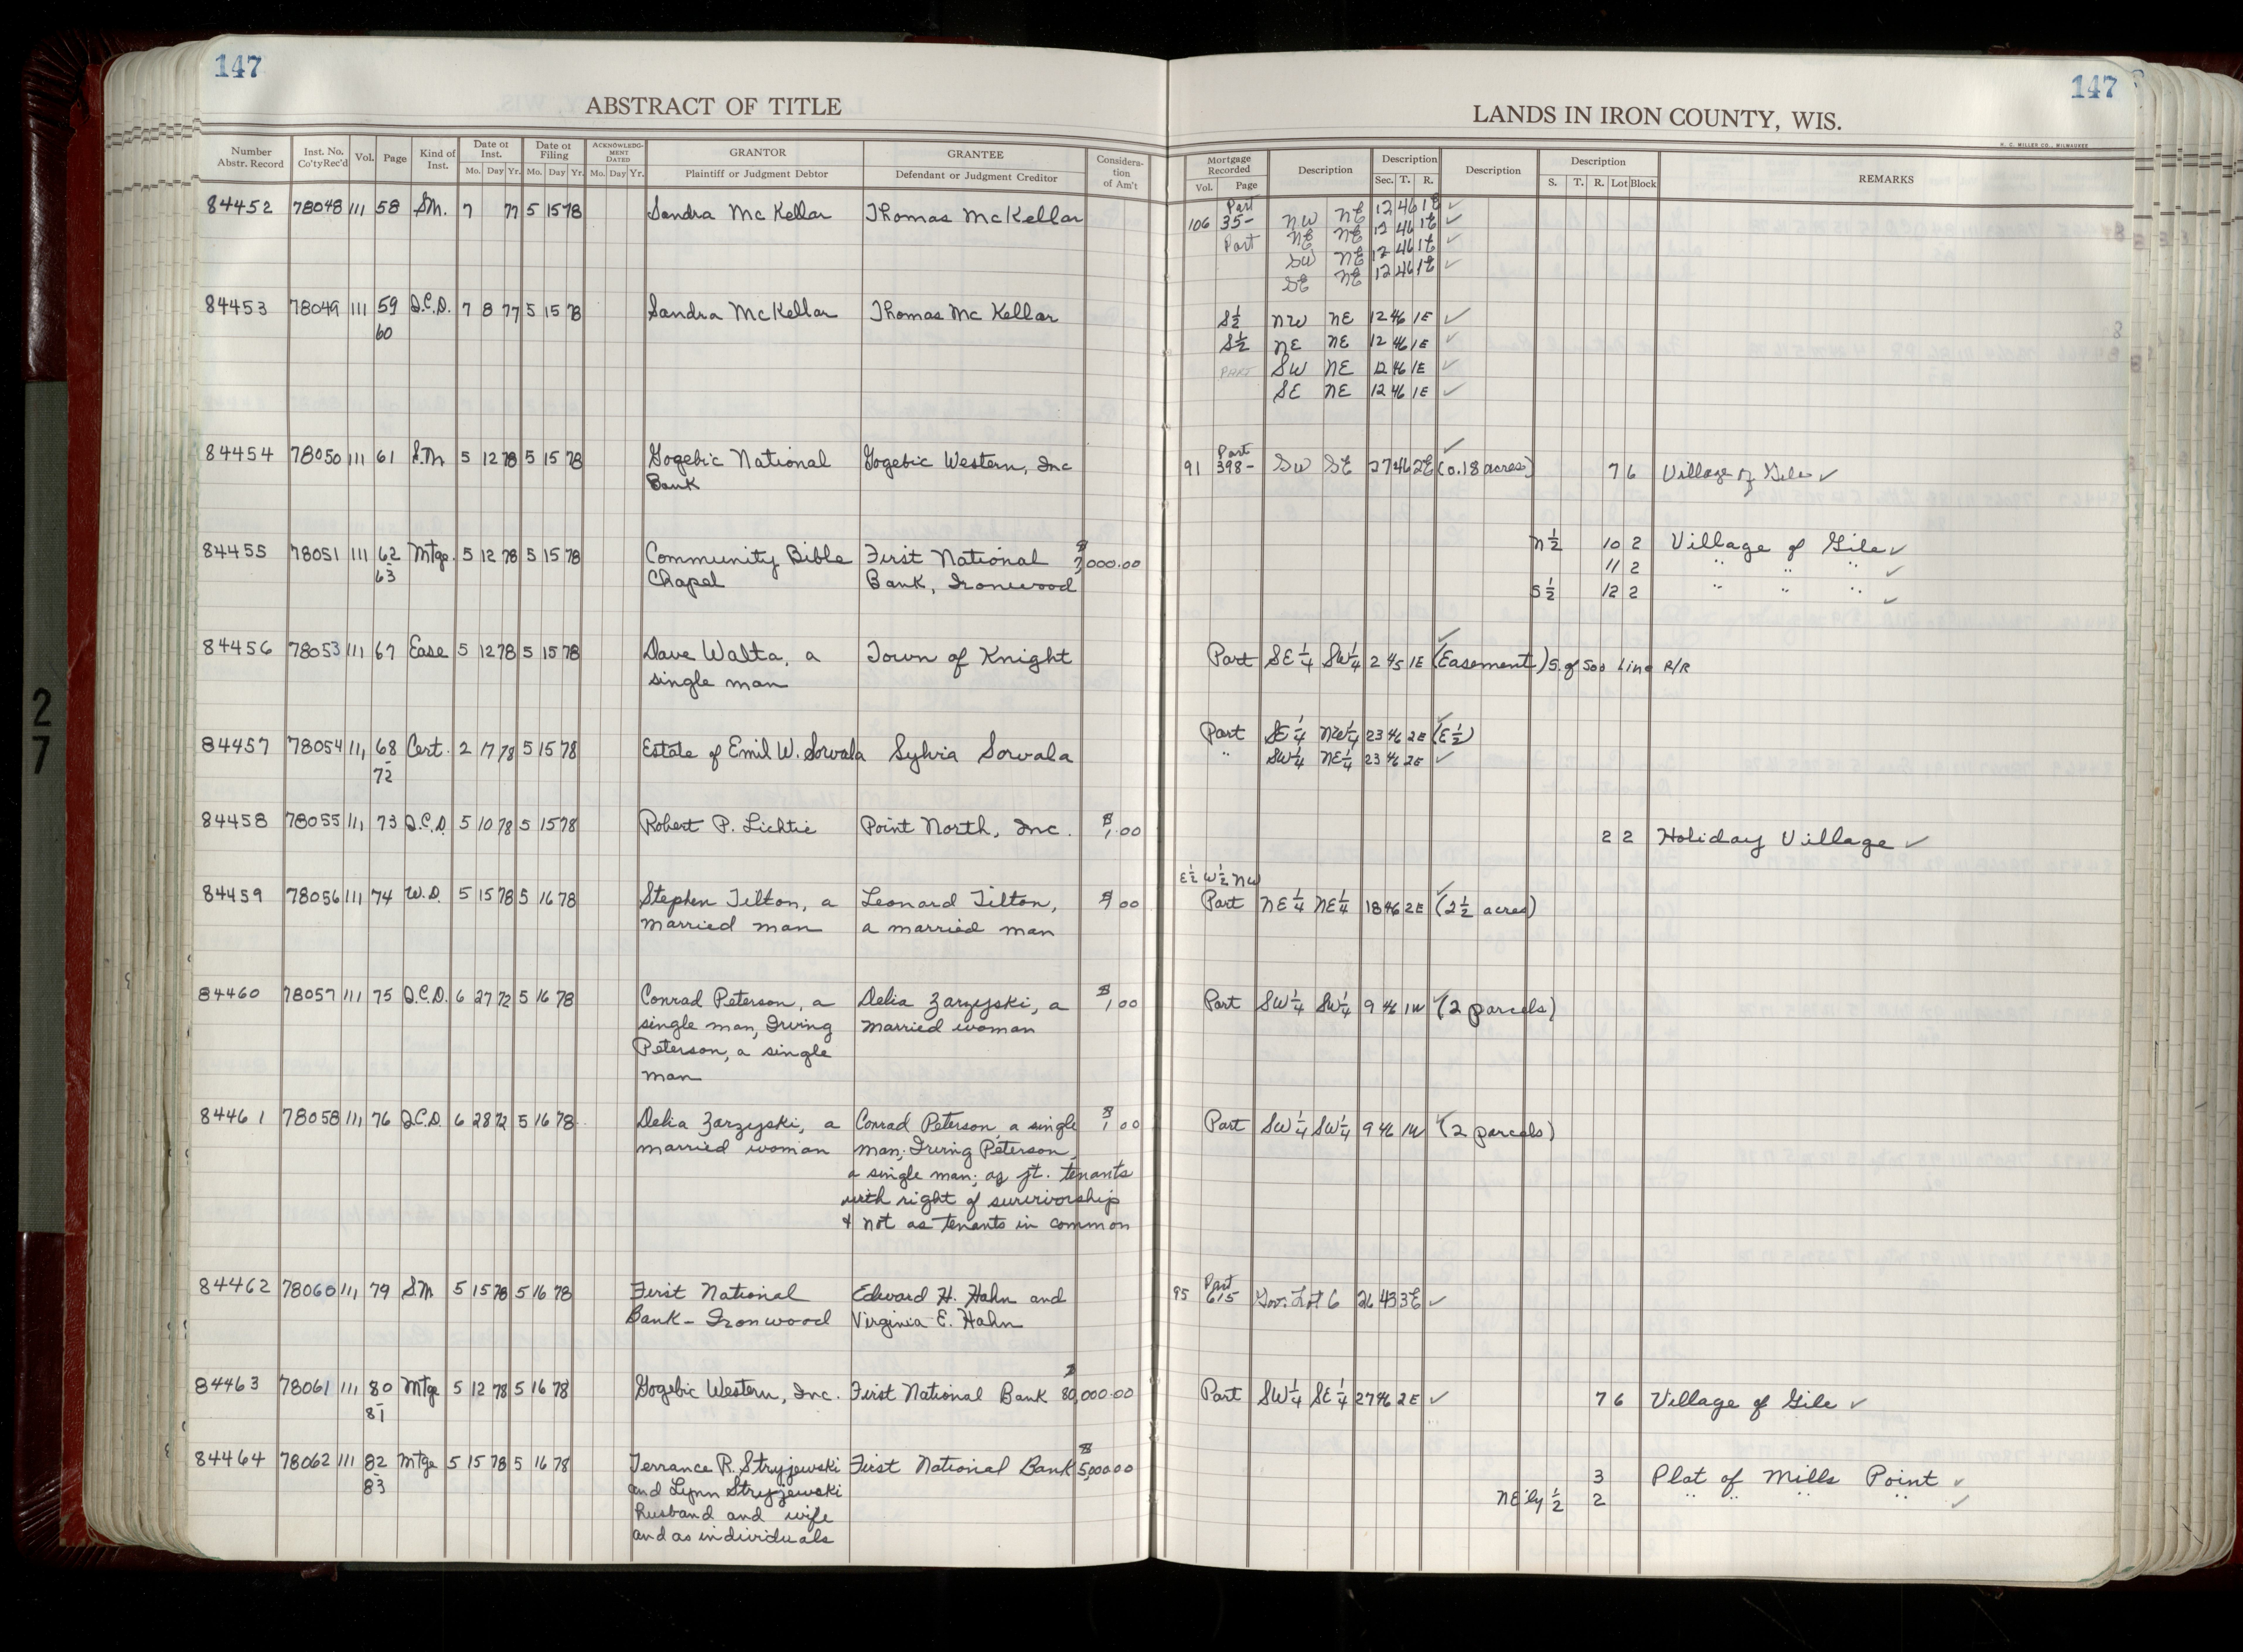 147
147
ABSTRACT OF TITLE
LANDS IN IRON COUNTY, WIS.
H. C. MILLER CO., MILWAUKEE
Number Abstr. Record Inst. No. Co'tyRec'd Vol. Page Kind of Inst. Date of Inst. Mo. Day Yr. Date of Filing Mo. Day Yr. ACKNOWLEDGMENT DATED Mo. Day Yr. GRANTOR Plaintiff or Judgment Debtor GRANTEE Defendant or Judgment Creditor Consideration of Am't Mortgage Recorded Vol. Page Description Description Sec. T. R. Description Description S. T. R. Lot Block REMARKS
84452 78048 111 58 S.M. 7 77 5 15 78 Sandra McKellar Thomas McKellar 106 Part 35- NW NE 12 46 1E ✓
NE NE 12 46 1E ✓
Part SW NE 12 46 1E ✓
SE NE 12 46 1E ✓
84453 78049 111 59 Q.C.D. 7 8 77 5 15 78 Sandra McKellar Thomas McKellar S½ NW NE 12 46 1E ✓
60 S½ NE NE 12 46 1E ✓
PART SW NE 12 46 1E ✓
SE NE 12 46 1E ✓
84454 78050 111 61 S.M. 5 12 78 5 15 78 Gogebic National Gogebic Western, Inc 91 Part 398- SW SE 27 46 2E (0.18 acres) ✓ 7 6 Village of Gile ✓
Bank
84455 78051 111 62 Mtge. 5 12 78 5 15 78 Community Bible First National $ 7,000.00 N½ 10 2 Village of Gile ✓
63 Chapel Bank, Ironwood 11 2 " " " ✓
S½ 12 2 " " " ✓
84456 78053 111 67 Ease 5 12 78 5 15 78 Dave Walta, a Town of Knight Part SE¼ SW¼ 2 45 1E ✓ (Easement) S. of Soo Line R/R
single man
84457 78054 111 68 Cert. 2 17 78 5 15 78 Estate of Emil W. Sorvala Sylvia Sorvala Part SE¼ NW¼ 23 46 2E ✓ (E½)
72 " SW¼ NE¼ 23 46 2E ✓
84458 78055 111 73 Q.C.D. 5 10 78 5 15 78 Robert P. Lichtie Point North, Inc. $ 1.00 2 2 Holiday Village ✓
E½ W½ NW
84459 78056 111 74 W.D. 5 15 78 5 16 78 Stephen Tilton, a Leonard Tilton, 00 Part NE¼ NE¼ 18 46 2E ✓ (2½ acres)
married man a married man
84460 78057 111 75 Q.C.D. 6 27 72 5 16 78 Conrad Peterson, a Delia Zarzyski, a $ 1.00 Part SW¼ SW¼ 9 46 1W ✓ (2 parcels)
single man, Irving married woman
Peterson, a single
man
84461 78058 111 76 Q.C.D. 6 28 72 5 16 78 Delia Zarzyski, a Conrad Peterson, a single $ 1.00 Part SW¼ SW¼ 9 46 1W ✓ (2 parcels)
married woman man; Irving Peterson,
a single man; as jt. tenants
with right of survivorship
& not as tenants in common
84462 78060 111 79 S.M. 5 15 78 5 16 78 First National Edward H. Hahn and 95 Part 615 Gov. Lot 6 26 43 3E ✓
Bank - Ironwood Virginia E. Hahn
84463 78061 111 80 Mtge 5 12 78 5 16 78 Gogebic Western, Inc. First National Bank $ 80,000.00 Part SW¼ SE¼ 27 46 2E ✓ 7 6 Village of Gile ✓
81
84464 78062 111 82 Mtge 5 15 78 5 16 78 Terrance R. Stryjewski First National Bank $ 5,000.00 3 Plat of Mills Point ✓
83 and Lynn Stryjewski NE'ly ½ 2 " " " " ✓
husband and wife
and as individuals
27